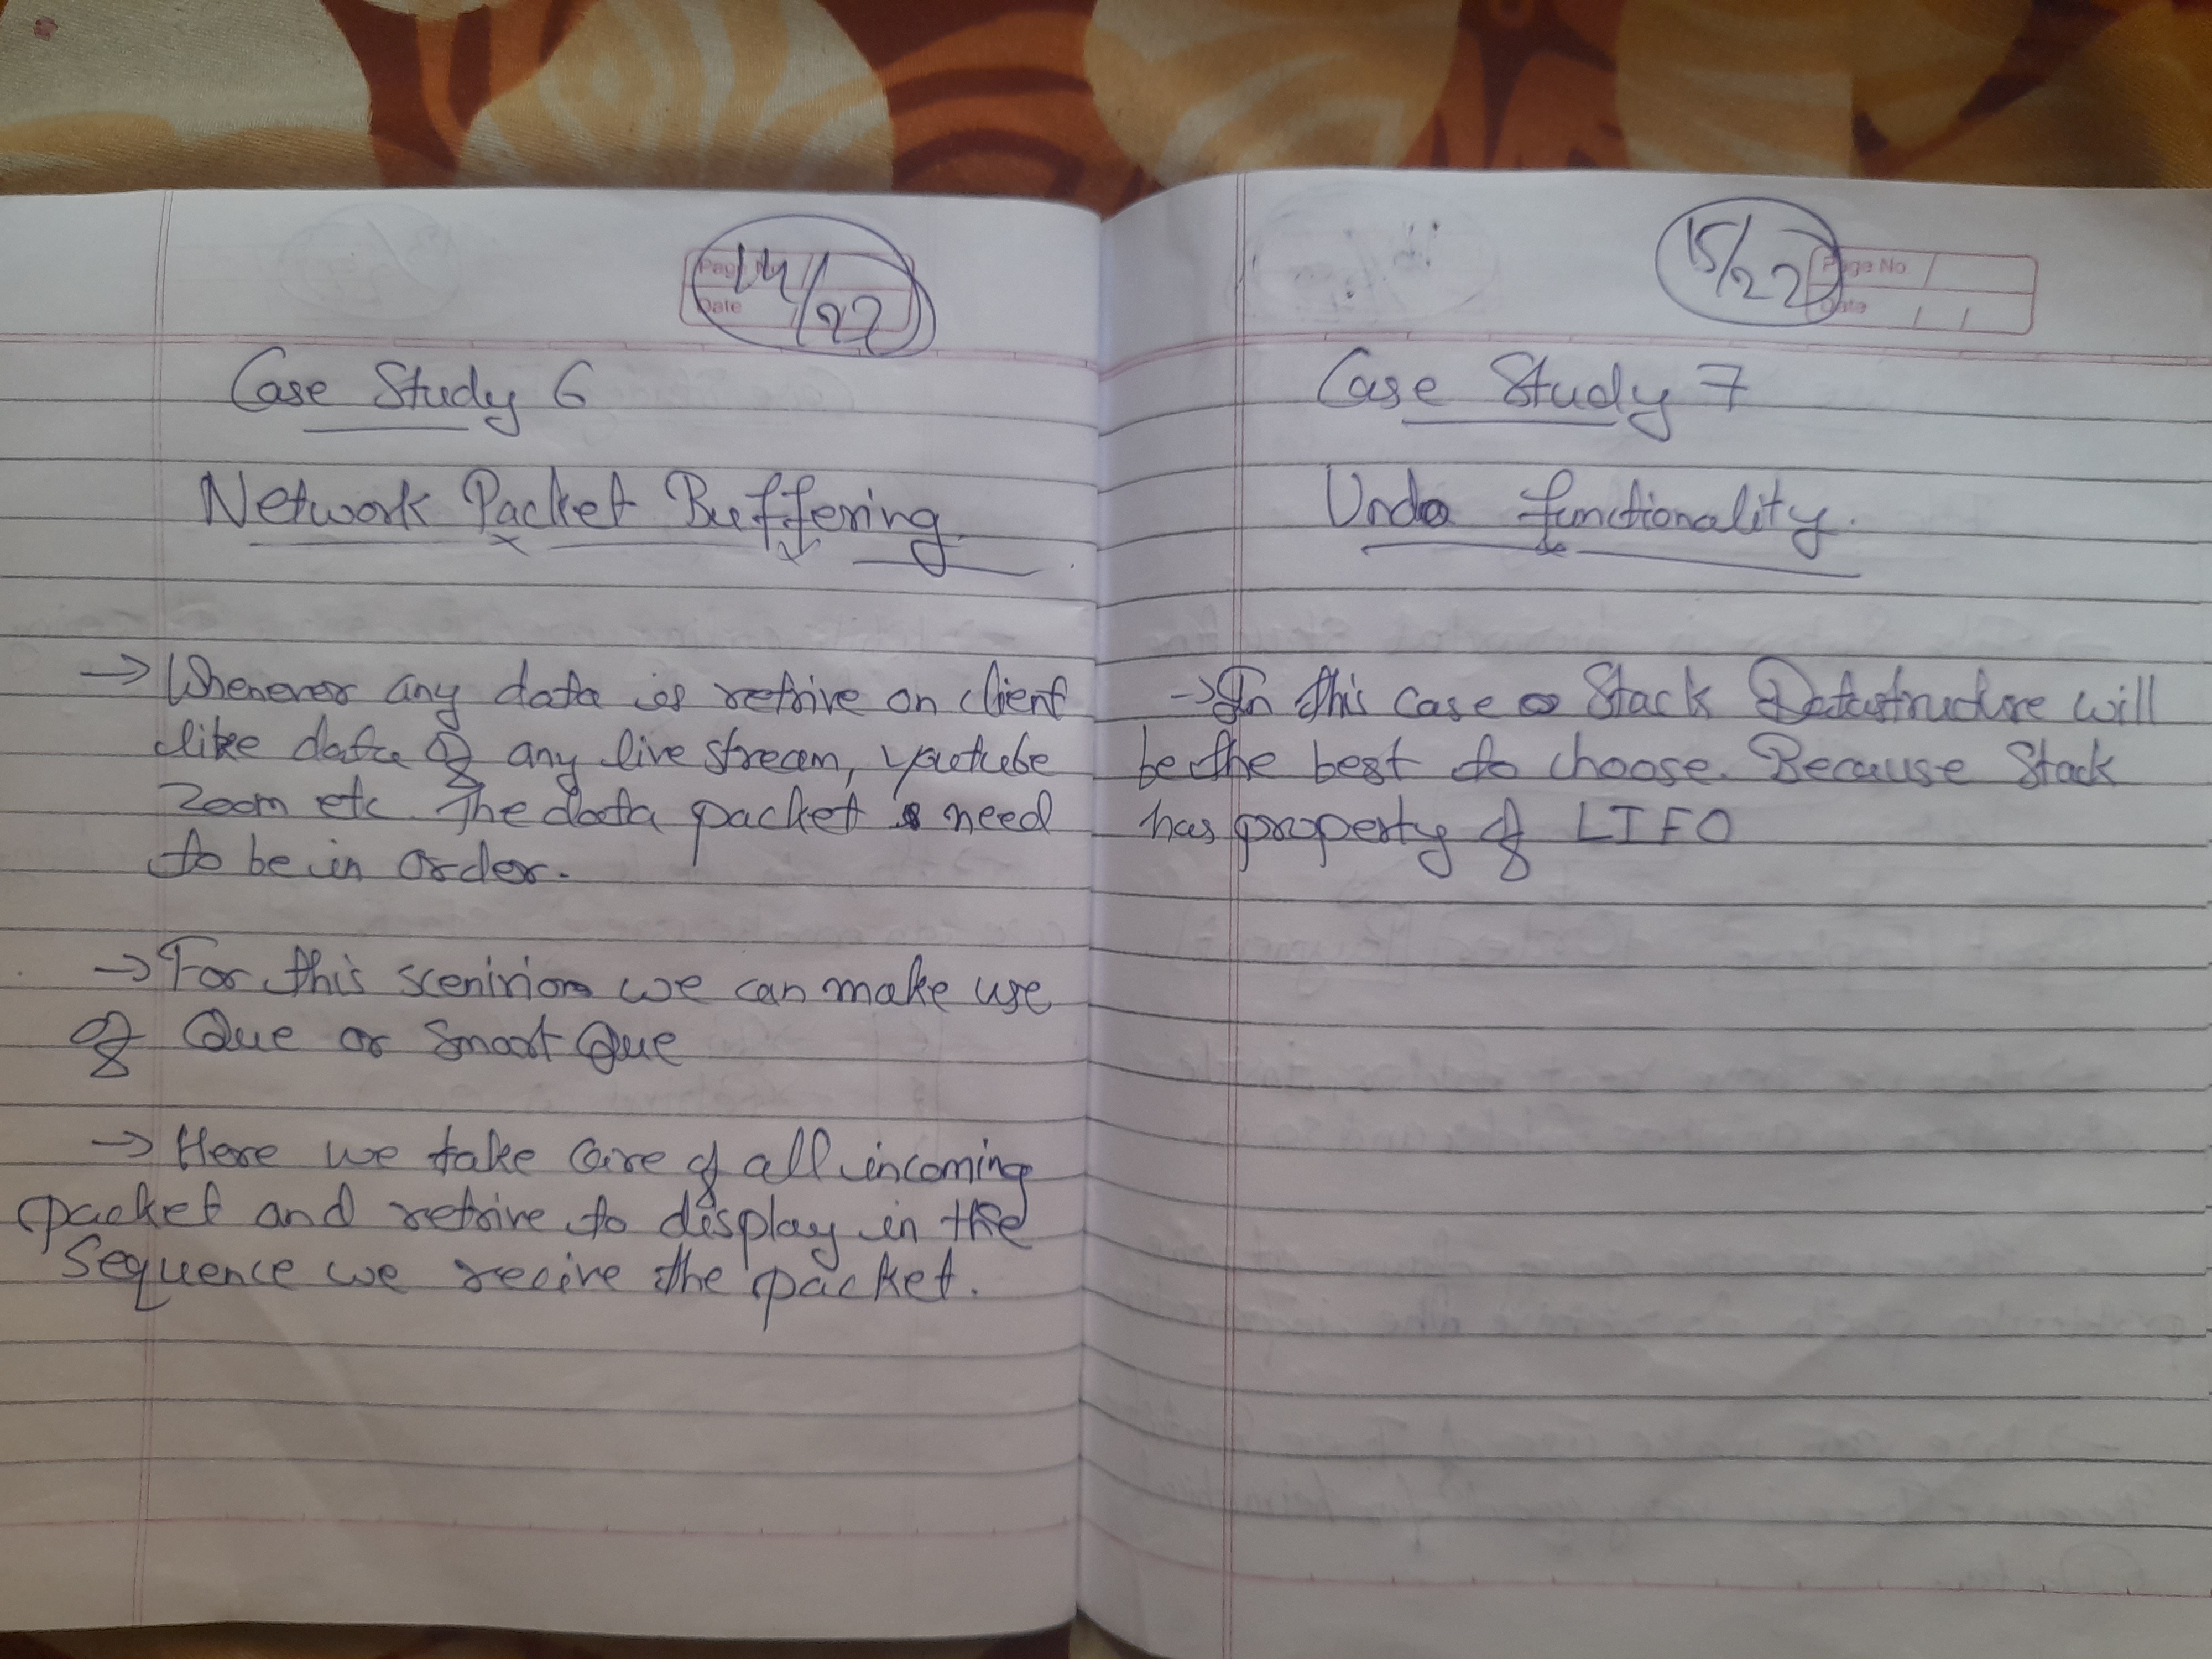 Page No
Date
14/22
Case Study 6
Network Packet Buffering
→ Whenever any data is retrive on client
like data of any live stream, youtube
zoom etc. The data packets need
to be in order.
→ For this scenirion we can make use
of Que or Smart Que
→ Here we take care of all incoming
packet and retrive to display in the
Sequence we recive the packet.
Page No
Date
15/22
Case Study 7
Undo functionality.
→ In this case Stack Datastructure will
be the best to choose. Because Stack
has property of LIFO